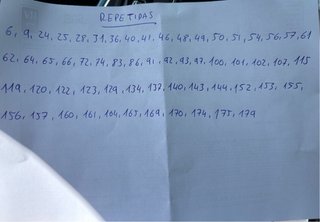 REPETIDAS
6, 9, 24, 25, 28, 31, 36, 40, 41, 46, 48, 49, 50, 51, 54, 56, 57, 61
62, 64, 65, 66, 72, 74, 83, 86, 91, 92, 93, 97, 100, 101, 102, 107, 115
119, 120, 122, 123, 129, 134, 137, 140, 143, 144, 152, 153, 155,
156, 157, 160, 161, 164, 165, 169, 170, 174, 175, 179